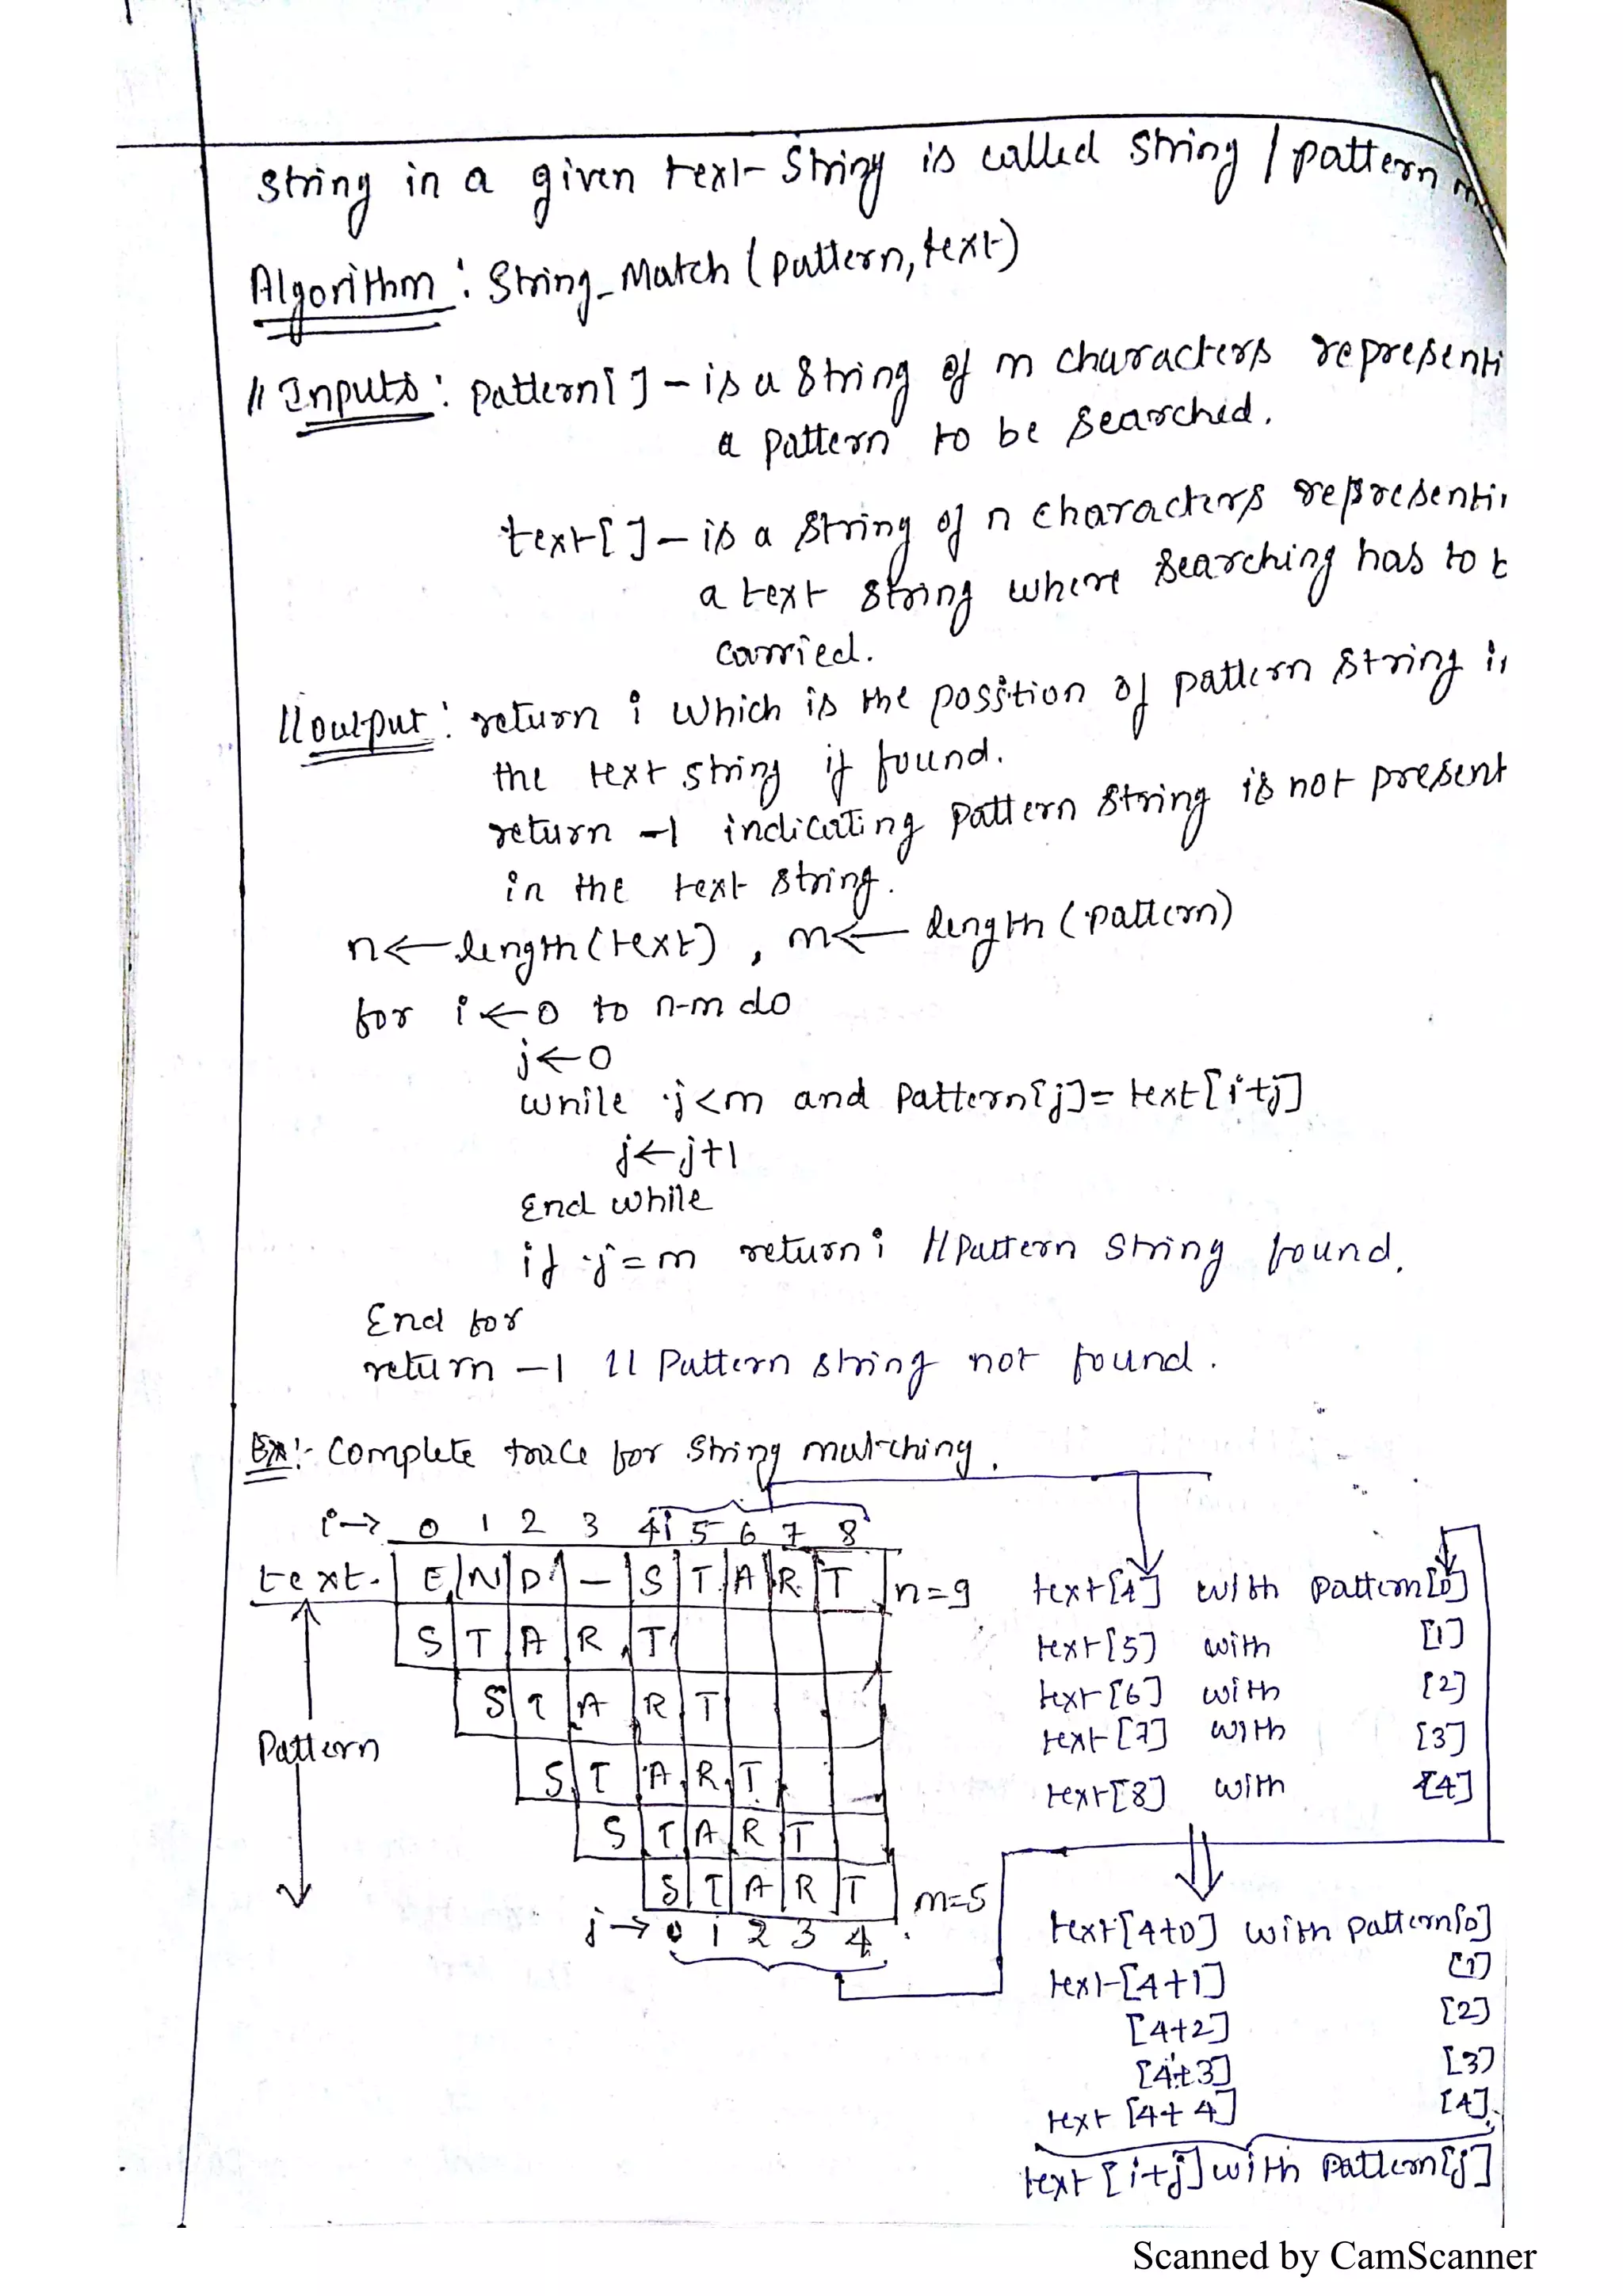 string in a given text string is called string / pattern m
Algorithm : String_Match (pattern, text)
// Inputs : pattern[ ] - is a string of m characters representi
a pattern to be searched.
text[ ] - is a string of n characters representin
a text string where searching has to b
carried.
// output : return i which is the position of pattern string in
the text string if found.
return -1 indicating pattern string is not present
in the text string.
n ← length(text) , m ← length (pattern)
for i ← 0 to n-m do
j ← 0
while j < m and Pattern[j] = text[i+j]
j ← j+1
End while
if j = m return i // Pattern string found.
End for
return -1 // Pattern string not found.
Ex:- Complete trace for string matching.
i → 0 1 2 3 4i 5 6 7 8
text. E N D - S T A R T n=9
S T A R T
S T A R T
Pattern
S T A R T
S T A R T
S T A R T m=5
j → 0 1 2 3 4
text[4] with pattern[0]
text[5] with [1]
text[6] with [2]
text[7] with [3]
text[8] with [4]
text[4+0] with pattern[0]
text[4+1] [1]
[4+2] [2]
[4+3] [3]
text [4+4] [4]
text [i+j] with Pattern[j]
Scanned by CamScanner